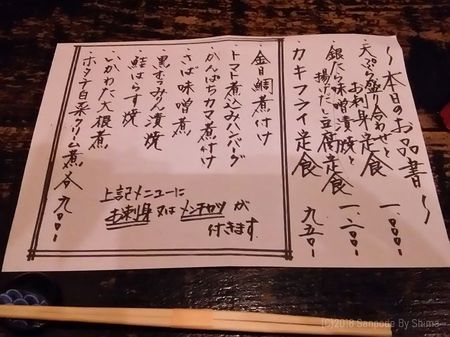 〜本日のお品書〜
・天ぷら盛り合わせと
お刺身定食 一、〇〇〇-
・銀だら味噌漬焼と
揚げだし豆腐定食 一、二〇〇-
・カキフライ定食 九五〇-
・金目鯛煮付け
・トマト煮込みハンバーグ
・かんぱちカマ煮付け
・さば味噌煮
・黒むつみりん漬焼
・鮭はらす焼
・いかわた大根煮
・ホタテ白菜クリーム煮 各九〇〇-
上記メニューに
お刺身又はメンチカツが
付きます
(C)2018 Sanpode By Shima